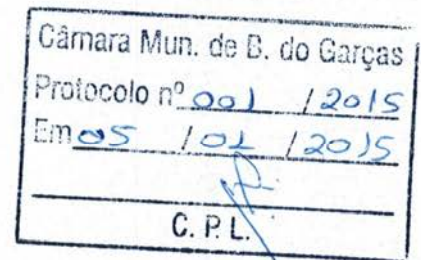 Câmara Mun. de B. do Garças
Protocolo nº 001 / 2015
Em 05 / 01 / 2015
C. P. L.